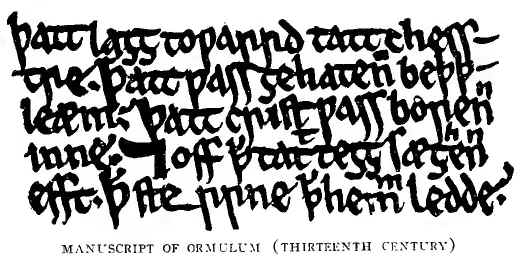 Þatt lagg toƿarrd tatt chess-
tre. Þatt ƿass gehatenn beþþ-
leæm. Þatt crist ƿass borenn
inne. ⁊ off ꝥ tatt tegg sæghenn
efft. ꝥ ste rrne ꝥ hemm ledde.
MANUSCRIPT OF ORMULUM (THIRTEENTH CENTURY)